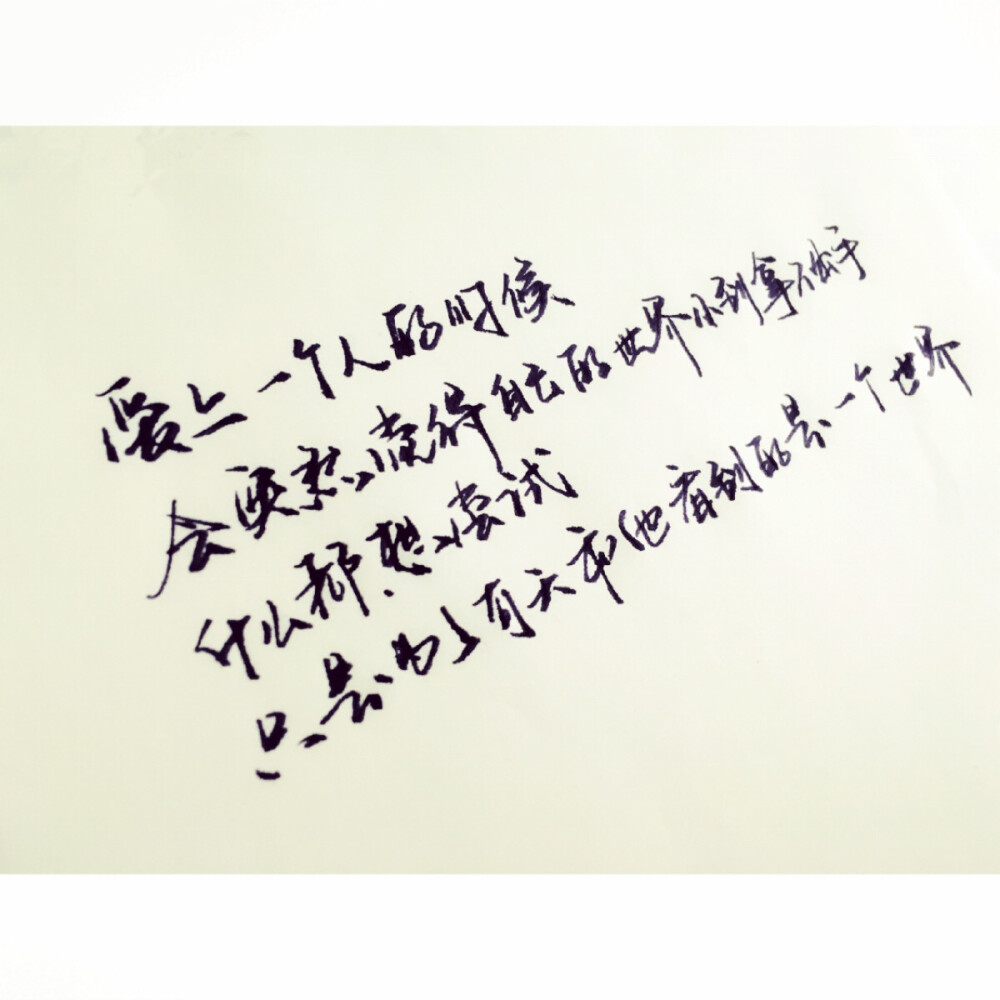 爱上一个人的时候
会突然觉得自己的世界小到拿不出手
什么都想尝试
只是为了有天带他看到的是一个世界